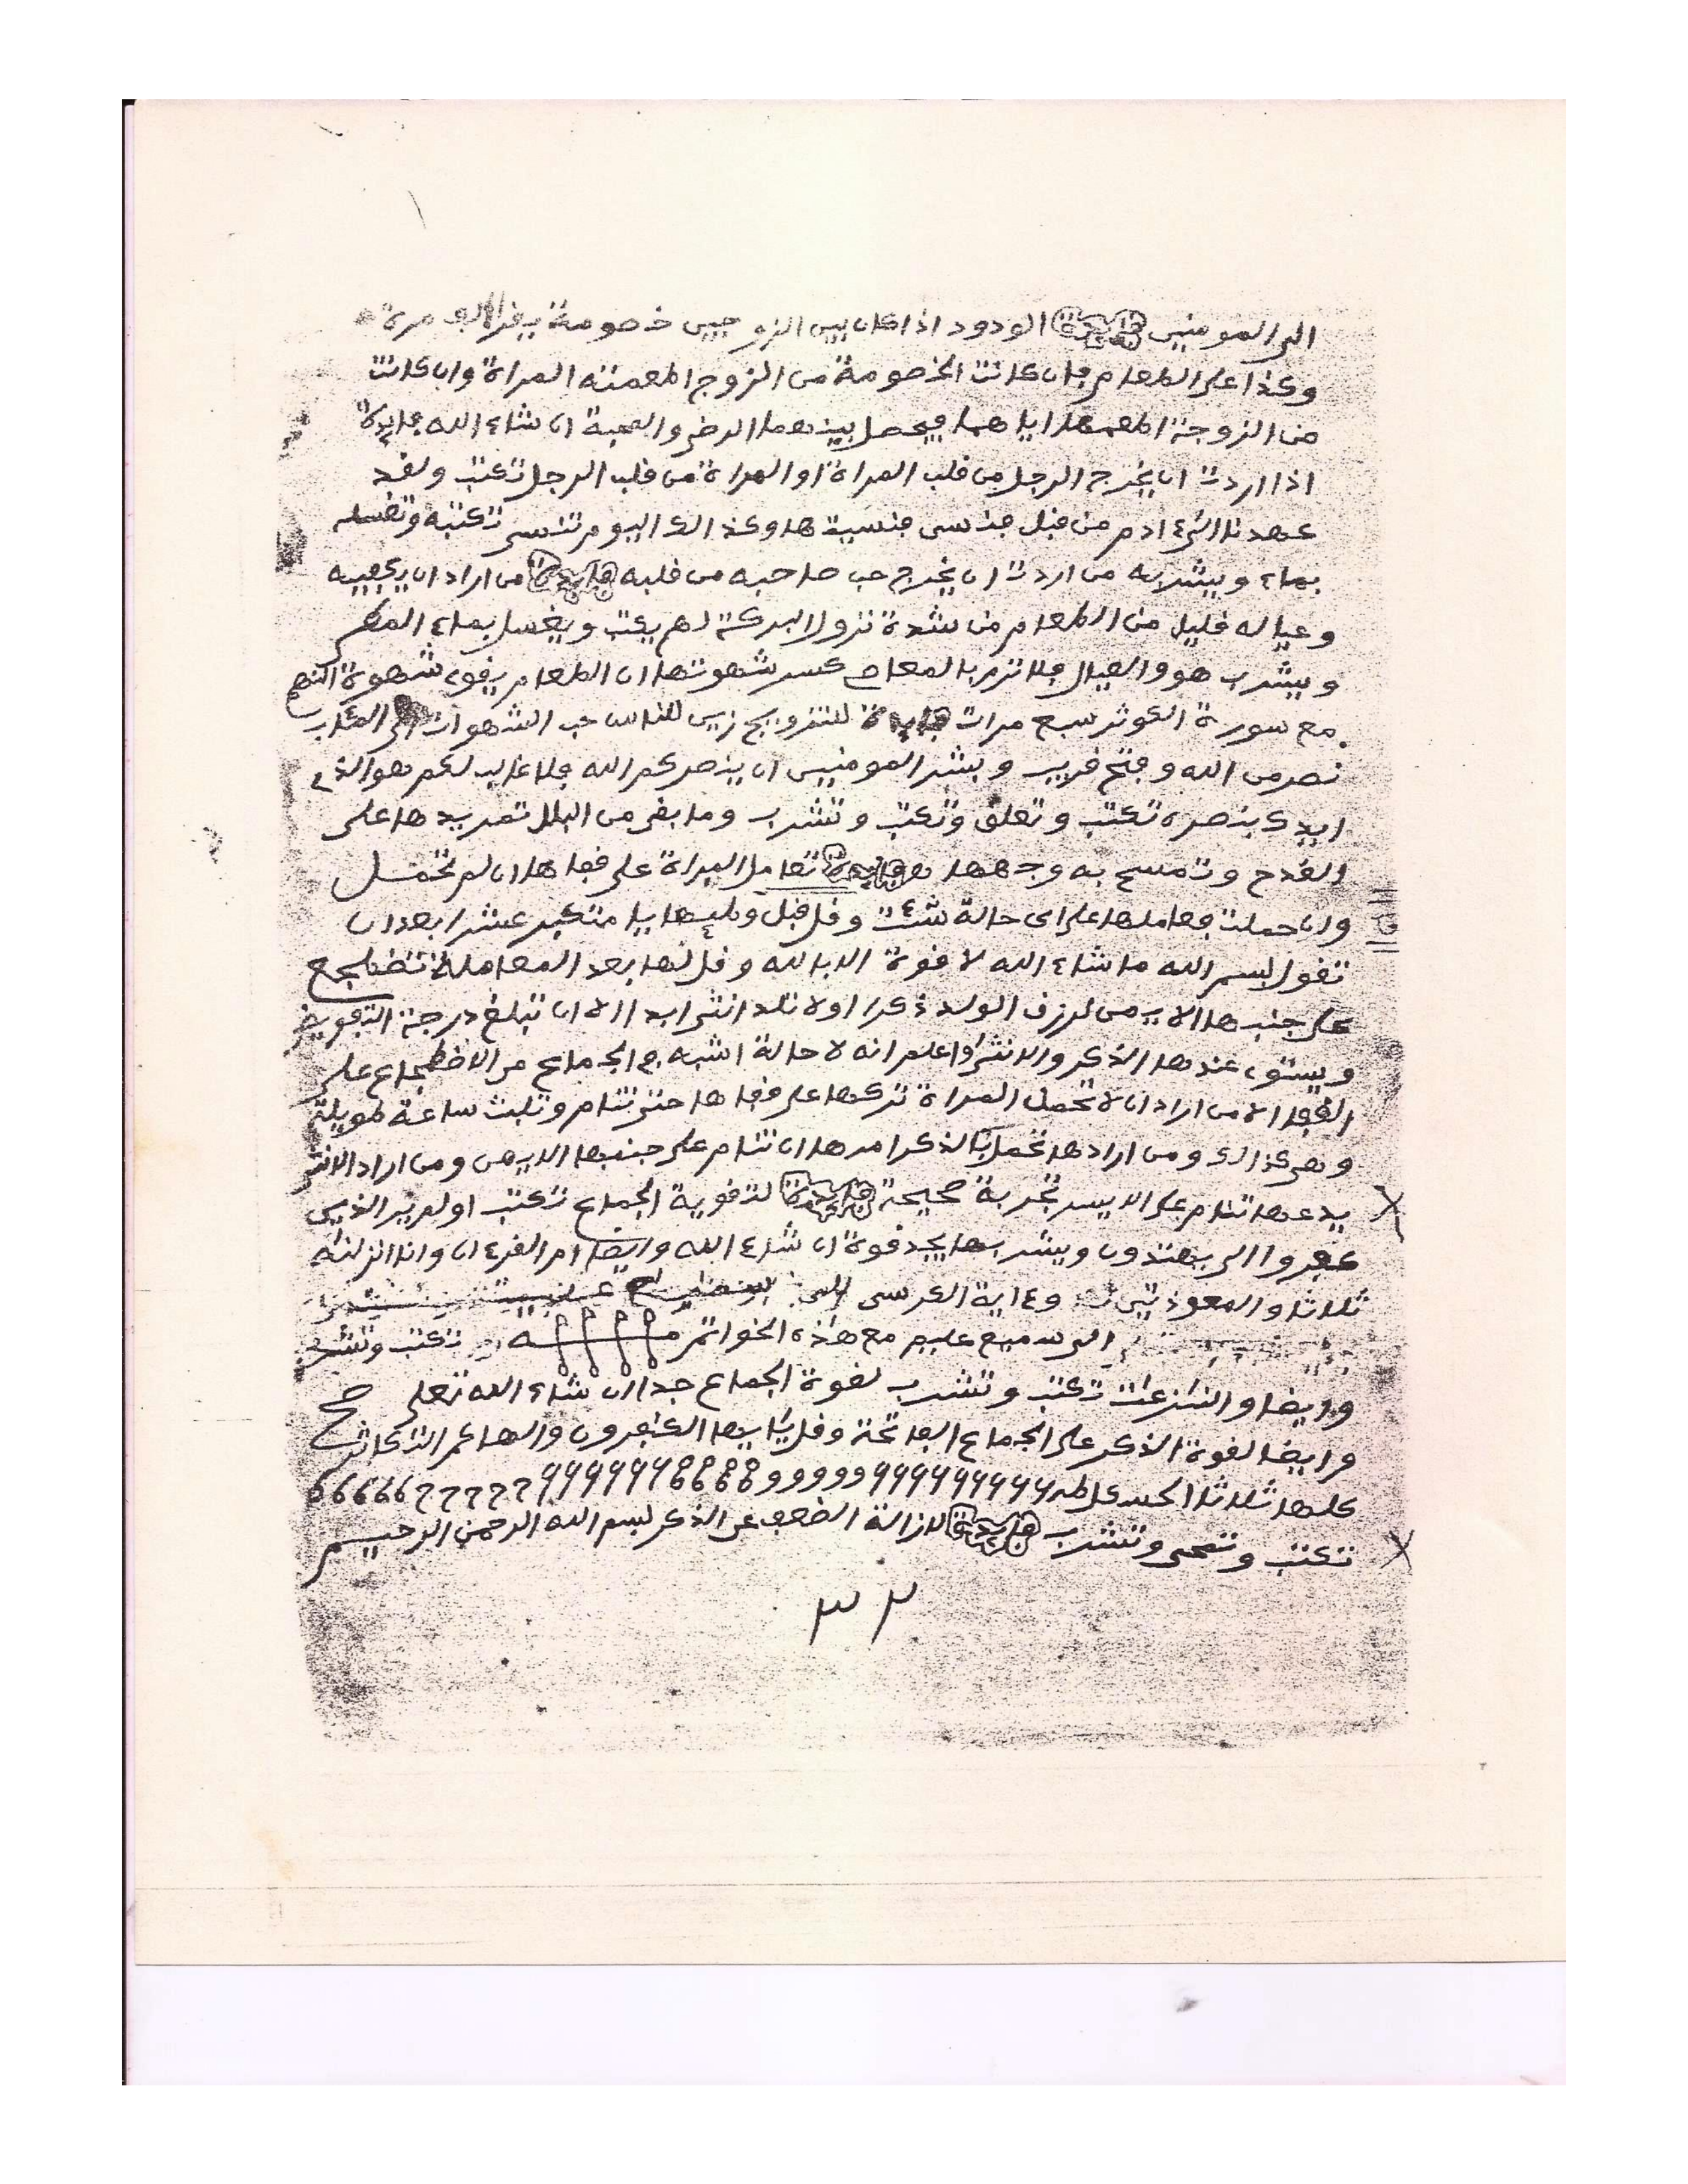 الى المومنين فايدة الودود اذا كان بين الزوجين خصومة يفرا الف مرة
وكذا على الطعام فان كانت الخصومة من الزوج اطعمته المراة وان كانت
من الزوجة اطعمها اياهما فيحصل بينهما الرضى والمحبة ان شاء الله فايدة
اذا اردت ان يخرج الرجل من فلب المراة او المراة من فلب الرجل تكتب ولفد
عهدنا الى ءادم من فبل فنسى فنسيتها وكذالك اليوم تنسى تكتبه وتغسله
بماء ويشربه من اردت ان يخرج حب صاحبه من فلبه فايدة من اراد ان يكفيه
وعياله فليل من الطعام من شدة نزول البركة لهم يكتب ويغسل بماء المطر
ويشرب هو والعيال فلا تزم بالمعاصى كسر شهوتها ان الطعام يفوى شهوة النهم
مع سورة الكوثر سبع مرات فايدة للتزويج زين للناس حب الشهوات الى المئاب
نصر من الله وفتح فريب وبشر المومنين ان ينصركم الله فلا غالب لكم هو الذى
ايدك بنصره تكتب وتعلق وتكتب وتشرب وما بفى من البلل تمر يدها على
الفدح وتمسح به وجهها فايدة تعامل المراة على ففاها ان لم تحمل
وان حملت فعاملها على اى حالة شئت وفل فبل وطيها يا متكبر عشرا بعد ان
تفول بسم الله ما شاء الله لا فوة الا بالله وفل لها بعد المعاملة تضطجع
على جنبها الايمن لرزق الولد ذكرا ولا تلد انثى ابدا الا ان تبلغ درجة التفويض
ويستوى عندها الذكر والانثى واعلم انه لا حالة اشبه فى الجماع من الاضطجاع على
الففا الا من اراد ان لا تحمل المراة تركها على ففاها حتى تنام وتلبث ساعة طويلة
وهى كذالك ومن ارادها تحمل بالذكر امرها ان تنام على جنبها الايمن ومن اراد الانثى
يدعها تنام على الايسر تجربة صحيحة فايدة لتفوية الجماع تكتب اولم ير الذين
كفروا الى يهتدون ويشربها يجد فوة ان شاء الله وايضا ام الفرءان وانا انزلناه
ثلاثا والمعوذتين وءاية الكرسى
الى سميع عليم مع هذه الخواتم تكتب وتشرب
وايضا والنازعات تكتب وتشرب لفوة الجماع جدا ان شاء الله تعلى صح
وايضا لفوة الذكر على الجماع الفاتحة وفل يا ايها الكفرون والهاكم التكاثر
كلها ثلاثا
تكتب وتمحى وتشرب فايدة لازالة الضعف عن الذكر بسم الله الرحمن الرحيم